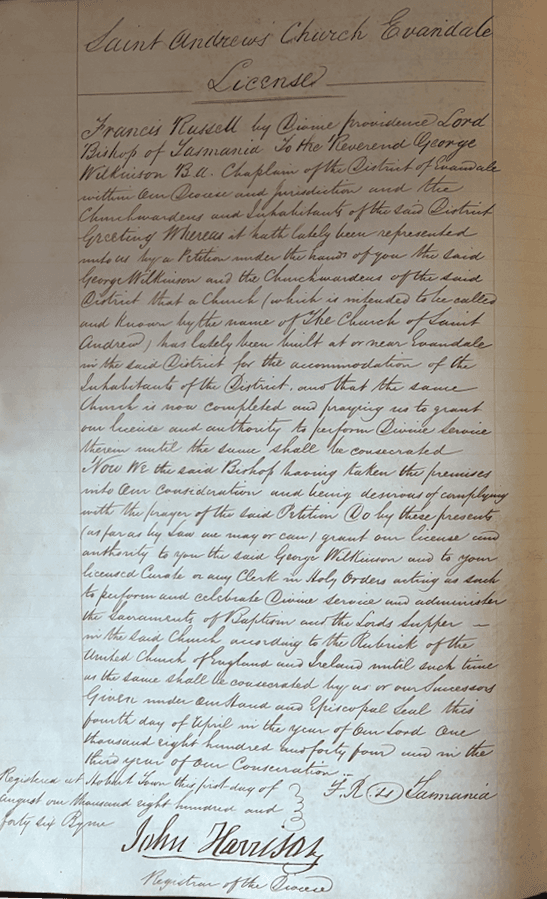 Saint Andrew's Church Evandale
License
Francis Russell by Divine providence Lord
Bishop of Tasmania To the Reverend George
Wilkinson B.A. Chaplain of the District of Evandale
within Our Diocese and Jurisdiction and the
Churchwardens and Inhabitants of the said District
Greeting Whereas it hath lately been represented
unto us by a Petition under the hands of you the said
George Wilkinson and the Churchwardens of the said
District that a Church (which is intended to be called
and known by the name of The Church of Saint
Andrew) has lately been built at or near Evandale
in the said District for the accommodation of the
Inhabitants of the District, and that the same
Church is now completed and praying us to grant
our license and authority to perform Divine Service
therein until the same shall be consecrated
Now We the said Bishop having taken the premises
into Our consideration and being desirous of complying
with the prayer of the said Petition Do by these presents
(as far as by Law we may or can) grant our license and
authority to you the said George Wilkinson and to your
licensed Curate or any Clerk in Holy Orders acting as such
to perform and celebrate Divine service and administer
the Sacraments of Baptism and the Lords Supper —
in the said Church according to the Rubrick of the
United Church of England and Ireland until such time
as the same shall be consecrated by us or our Successors
Given under our Hand and Episcopal Seal this
fourth day of April in the year of Our Lord One
thousand eight hundred and forty four and in the
third year of Our Consecration
F. R. (LS) Tasmania
Registered at Hobart Town this first day of
August one thousand eight hundred and
forty six By me
John Harrison
Registrar of the Diocese